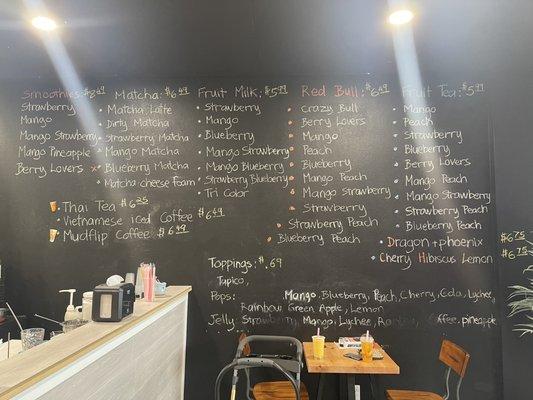 Smoothies: $6.49
Strawberry
Mango
Mango Strawberry
Mango Pineapple
Berry Lovers
Matcha: $6.49
Matcha Latte
Dirty Matcha
Strawberry Matcha
Mango Matcha
Blueberry Matcha
Matcha cheese foam
Fruit Milk: $5.99
Strawberry
Mango
Blueberry
Mango Strawberry
Mango Blueberry
Strawberry Blueberry
Tri Color
Red Bull: $6.49
Crazy Bull
Berry Lovers
Mango
Peach
Blueberry
Mango Peach
Mango Strawberry
Strawberry
Strawberry Peach
Blueberry Peach
Fruit Tea: $5.99
Mango
Peach
Strawberry
Blueberry
Berry Lovers
Mango Peach
Mango Strawberry
Strawberry Peach
Blueberry Peach
Dragon + phoenix $6.75
Cherry Hibiscus Lemon $6.75
Thai Tea $6.25
Vietnamese iced Coffee $6.49
Mudflip Coffee $6.49
Toppings: $.69
Tapico,
Pops: Mango, Blueberry, Peach, Cherry, Cola, Lychee,
Rainbow, Green Apple, Lemon
Jelly: Strawberry, Mango, Lychee, Rainbow, Coffee, pineapple